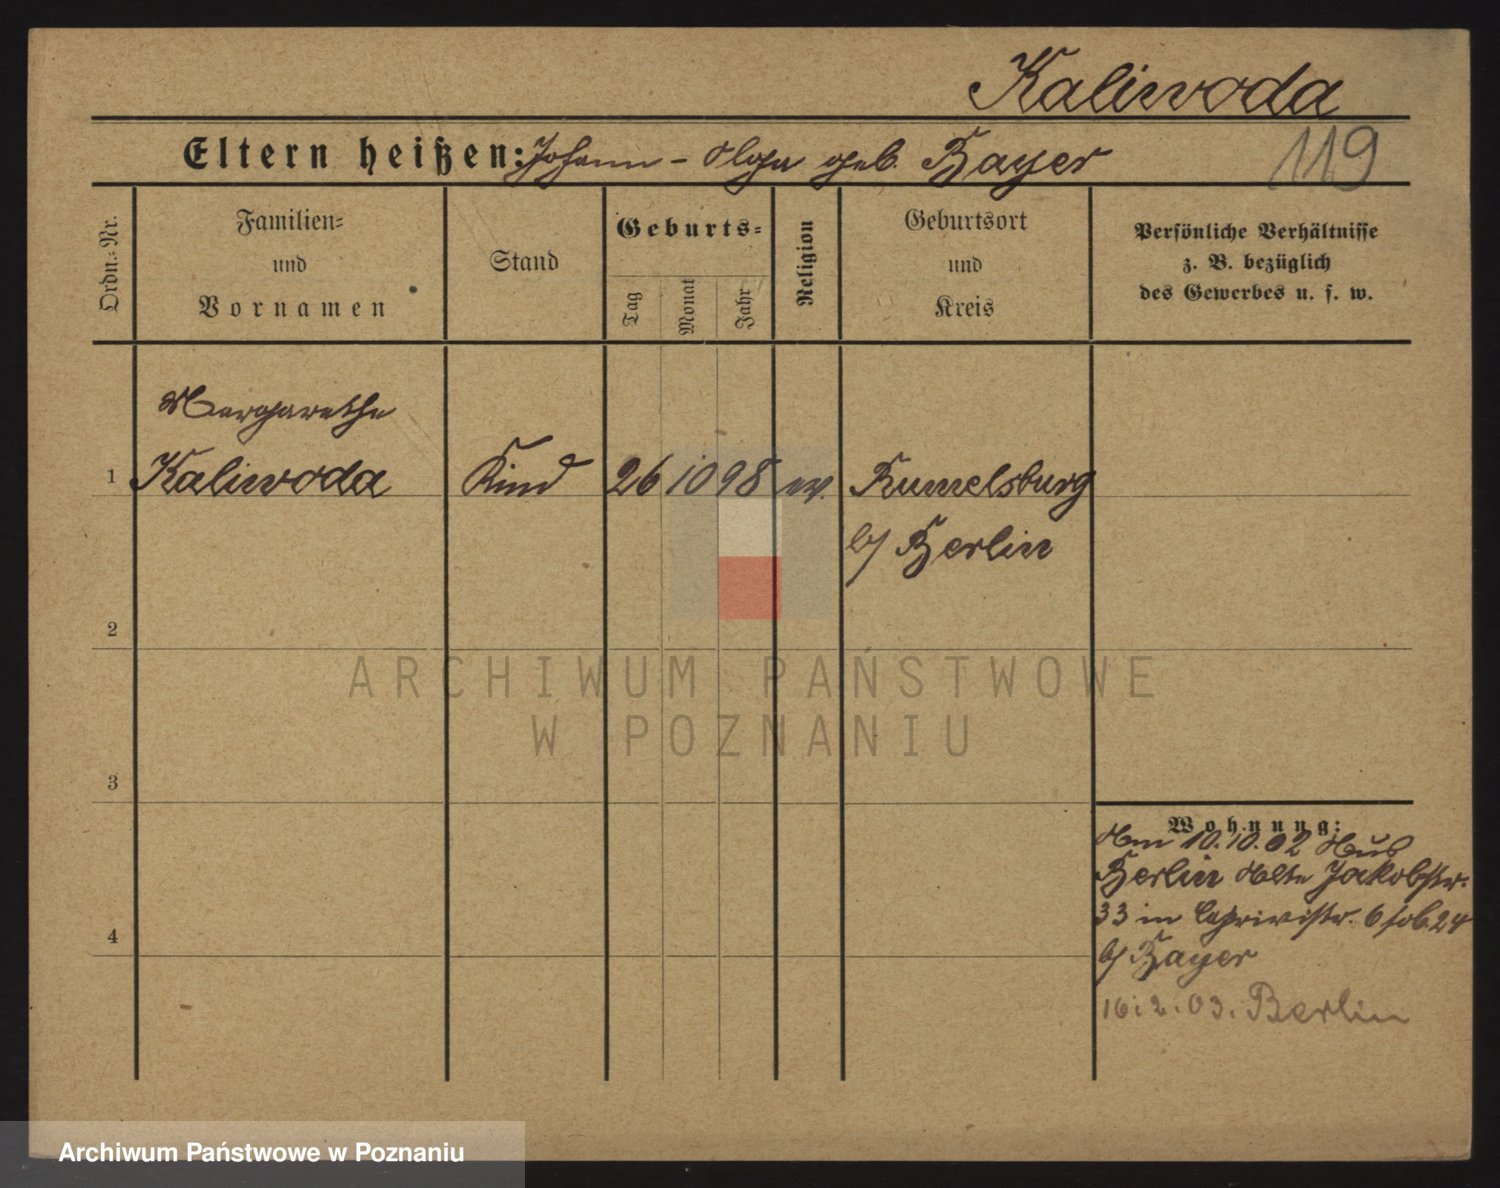 Kaliwoda
Eltern heißen: Johann - Olga geb. Bayer
119
Ordn.-Nr.
Familien-
und
Vornamen
Stand
Geburts-
Tag
Monat
Jahr
Religion
Geburtsort
und
Kreis
Persönliche Verhältnisse
z. B. bezüglich
des Gewerbes u. s. w.
Margarethe
1 Kaliwoda Kind 26 10 98 ev. Rumelsburg
b/ Berlin
2
ARCHIWUM PAŃSTWOWE
W POZNANIU
3
Wohnung:
Am 10.10.02 Aus
Berlin Alte Jakobstr.
33 in Caprivistr. 6
4
b/ Bayer
16.2.03. Berlin
Archiwum Państwowe w Poznaniu